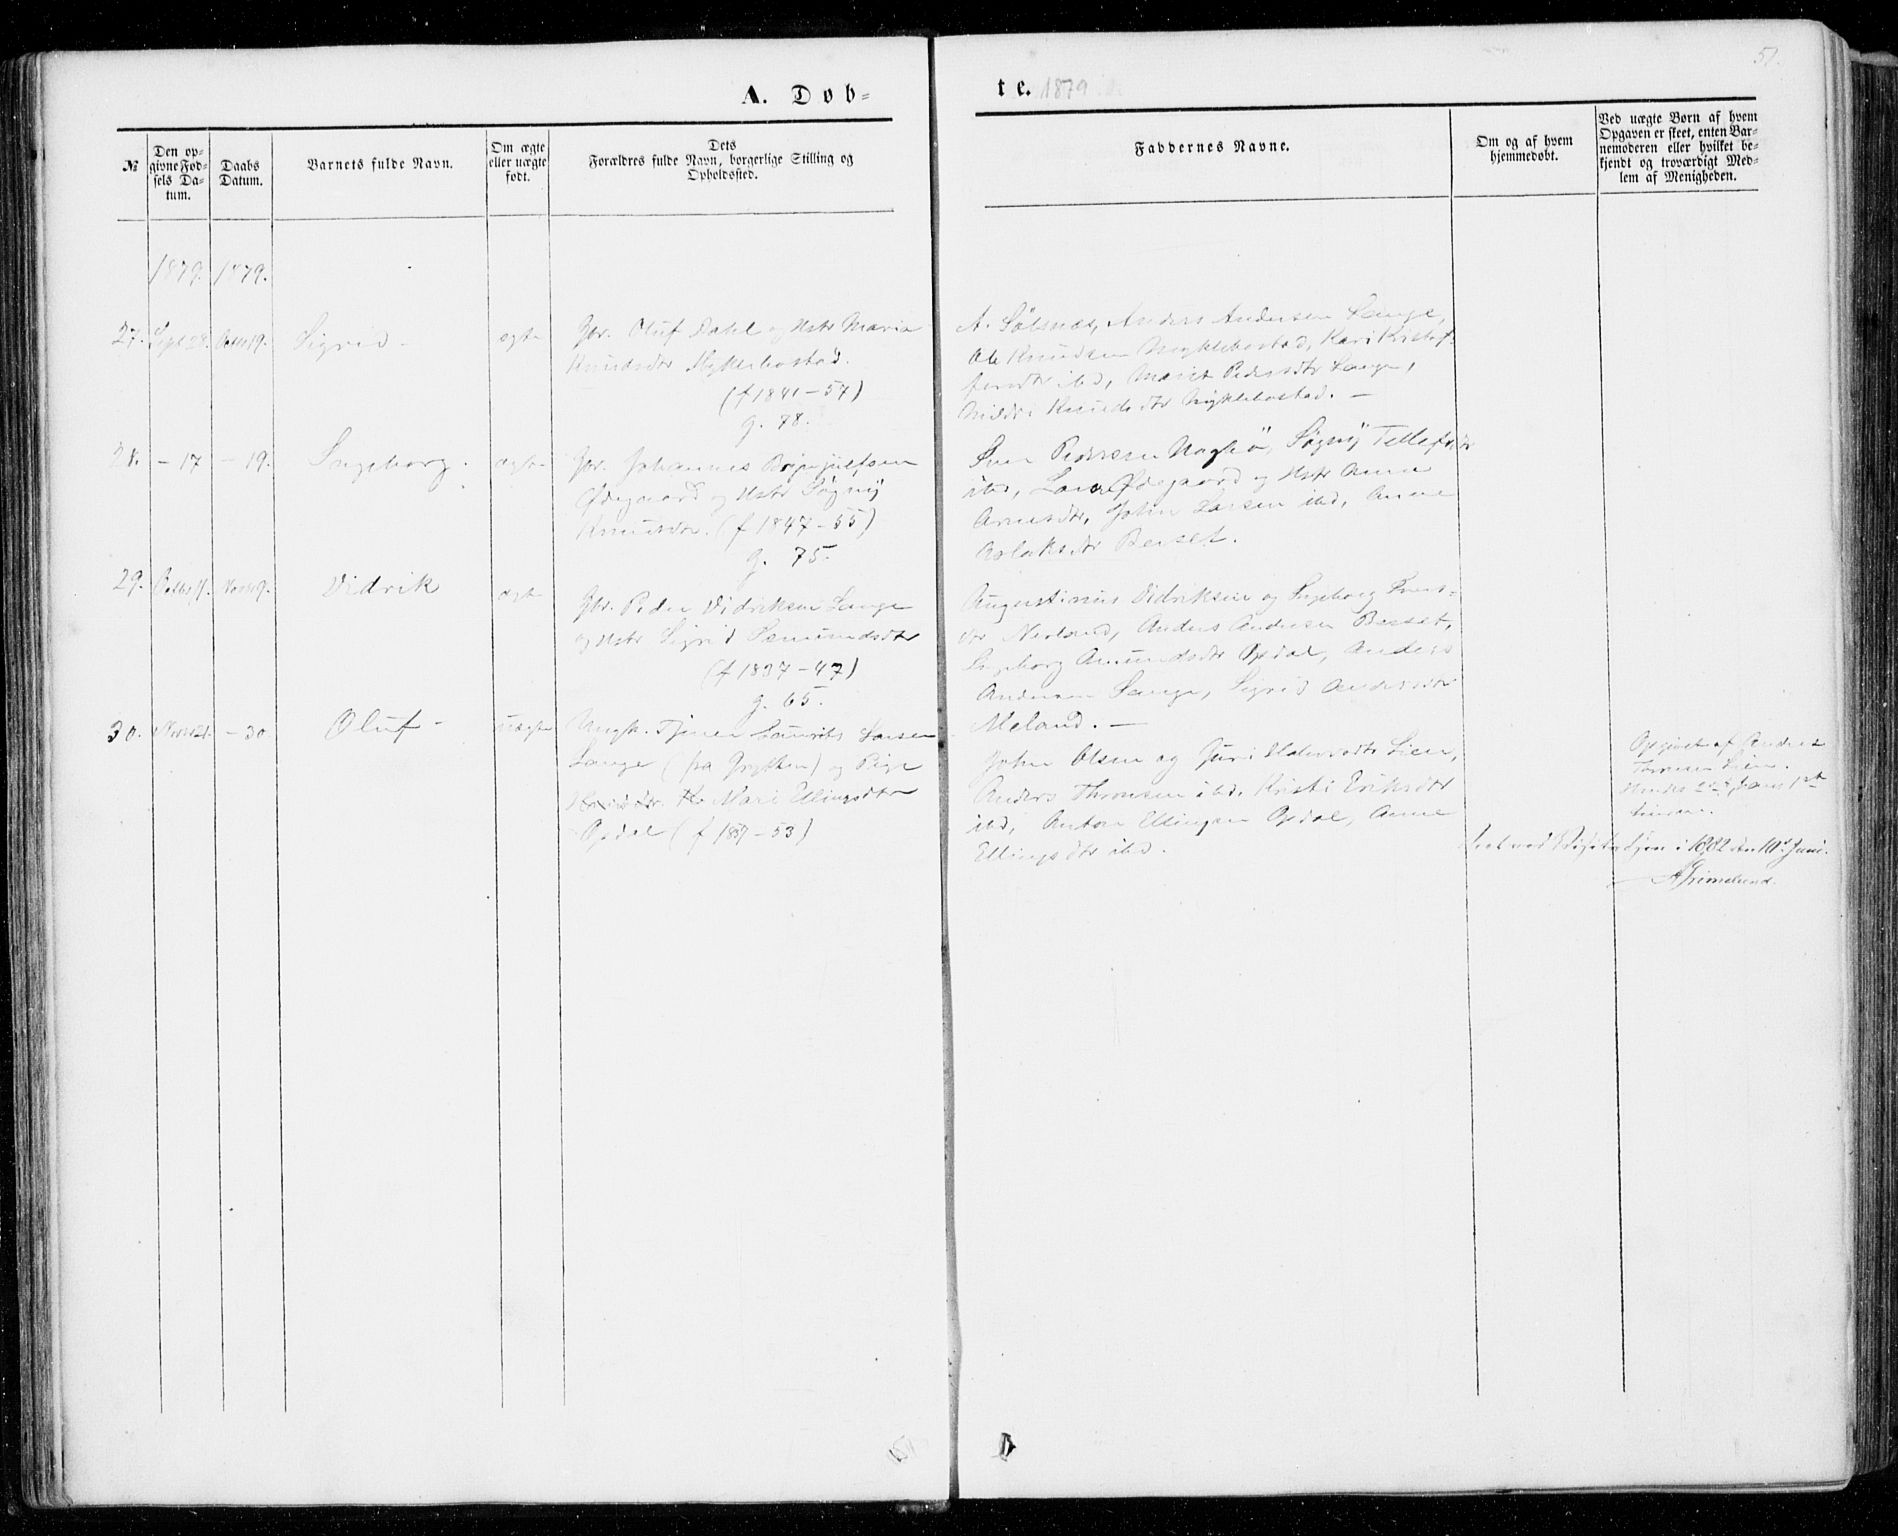 51.
A. Døb=
te. 1879.
№
Den op-
givne Fød-
sels Da-
tum.
Daabs
Datum.
Barnets fulde Navn.
Om ægte
eller uægte
født.
Dets
Forældres fulde Navn, borgerlige Stilling og
Opholdssted.
Faddernes Navne.
Om og af hvem
hjemmedøbt.
Ved uægte Børn af hvem
Opgaven er skeet, enten Bar-
nemoderen eller hvilket be-
kjendt og troværdigt Med-
lem af Menigheden.
1879. 1879.
27. Sept 28. Octbr 19. Sigrid - ægte
Gbr. Oluf Dahl og Hstr Maria
Knudsdtr Myklebostad.
(f 1841-57)
g. 78.
A. Sølsnæs, Anders Andersen Lange,
Ole Knudsen Myklebostad, Kari Kristof-
fersdtr ibd, Marit Pedersdtr Lange,
Knudsdtr Myklebostad. -
28. - 17 - 19. Ingeborg. ægte
Gbr. Johannes
Ødegaard og Hstr Søgnij
Knudsdtr. (f 1847-55)
g. 75.
Pedersen Søgnij
ibd, Lars Ødegaard og Hstr Anne
Arnesdtr, John Larsen ibd, Anne
Aslaksdtr Berset.
29. Octbr 11. Novbr 9. Vidrik ægte
Gbr. Peder Vidriksen Lange
og Hstr Sigrid
(f 1837-47)
g. 65.
Augustinus Vidriksen og Ingeborg Ivers-
dtr Nerland, Anders Andersen Berset,
Ingeborg Amundsdtr Opdal, Anders
Andersen Lange, Sigrid Andersdtr
Meland. -
30. Novbr 21. - 30. Oluf - uægte
Ungk. Tjener Laurits Larsen
Lange (fra Grytten) og Pige
Mari Ellingsdtr
Opdal (f 1857-53)
John Olsen og Guri Halvorsdtr Lien,
Anders Thronsen ibd. Kristi Eriksdtr
ibd, Anton Ellingsen Opdal, Anne
Ellingsdtr ibd.
Opgivet af Anders
Thronsen Lien.
Hendes 2det, hans 1ste
Seet ved Visitatsen i 1882 den 10de Juni.
A Grimelund.